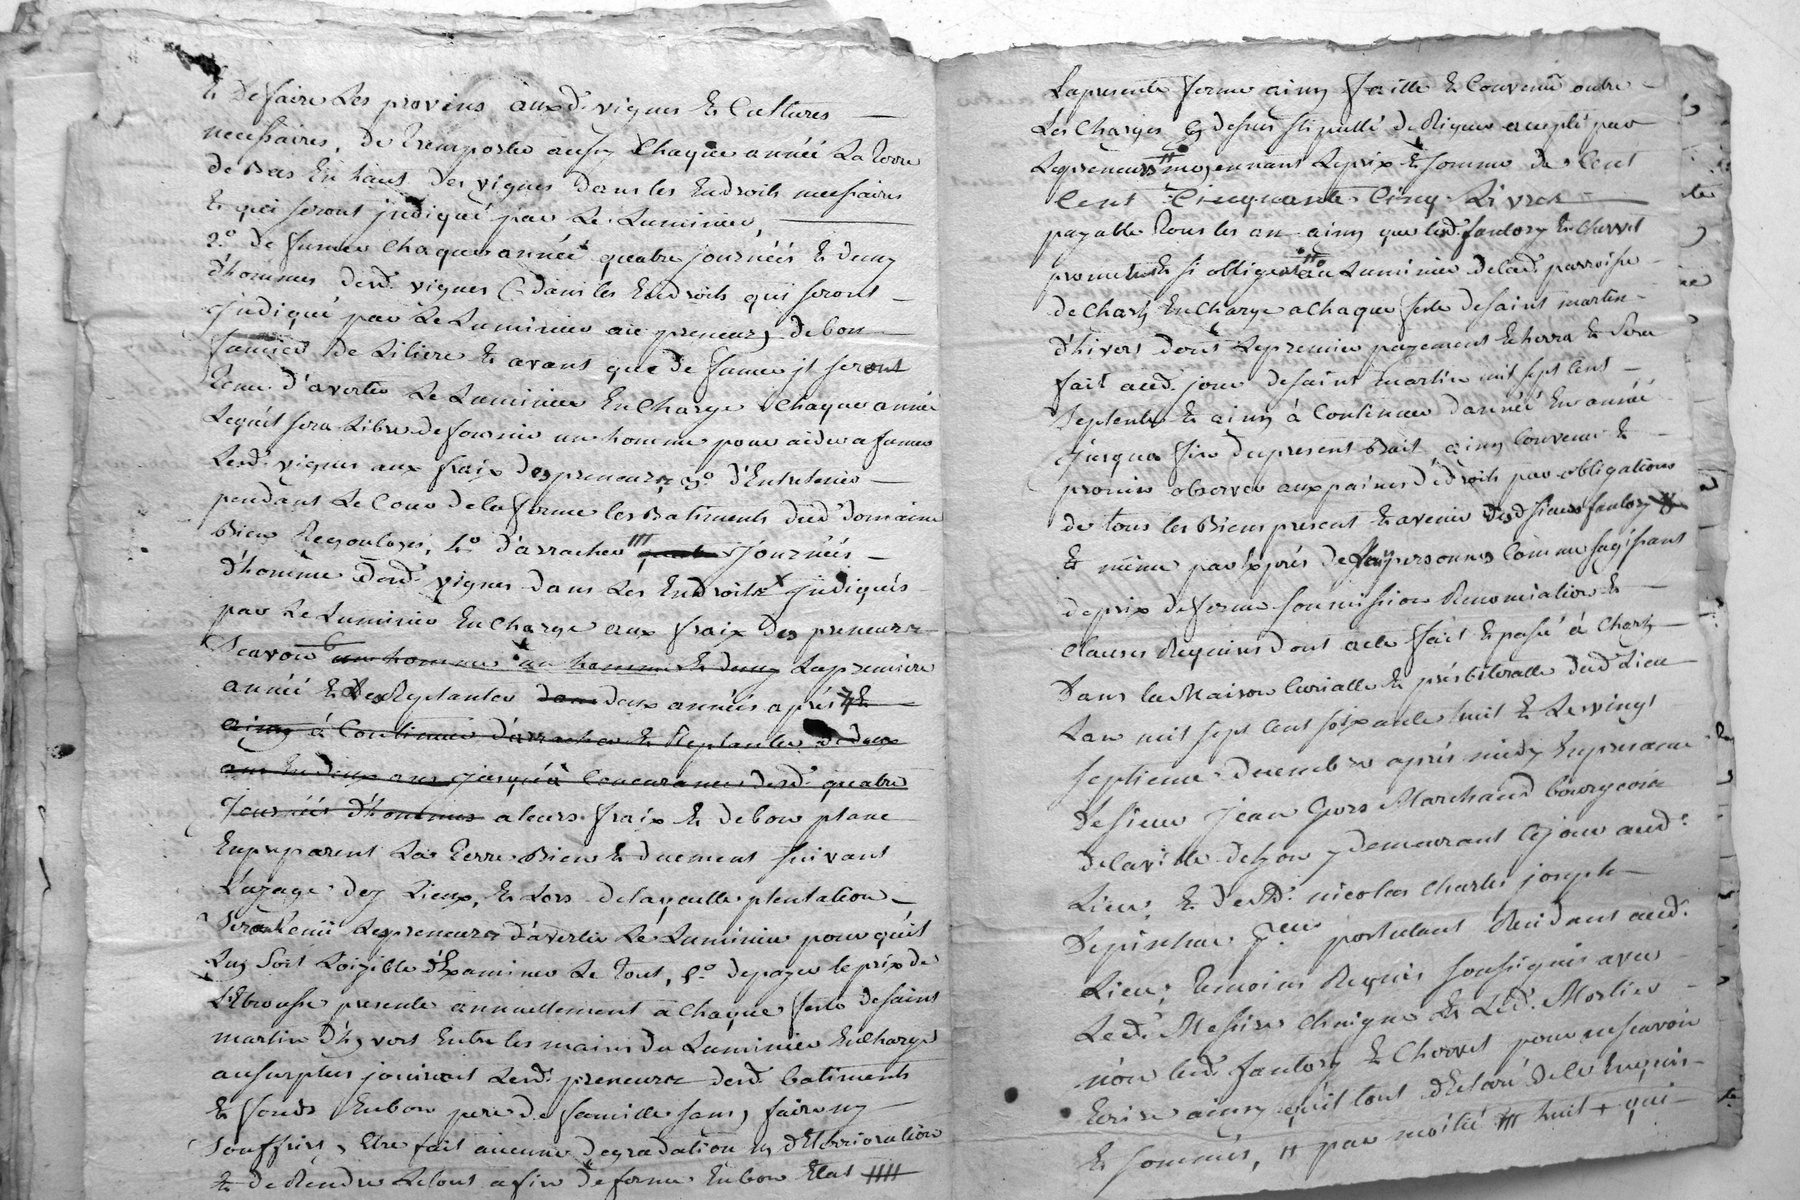 & de faire Les provins auxd. vignes & Cultures
necessaires, de Transporter aussy Chaque année La Terre
de Bas En haut des vignes dans les Endroits necessaires
& qui seront jndiqué par Le Luminier,
2.º de fumer Chaque année quatre journéés & demy
d'hommes desd. vignes & dans les Endroits qui seront
jndiqué par Le Luminier au preneurs de bon
fumier de Litiere & avant que de fumer jl seront
Tenu d'avertir Le Luminier En Charge Chaque année
Lequel sera Libre de fournir un homme pour aider a fumer
Lesd. vignes aux fraix des preneurs, 3.º d'Entretenir
pendant Le Cour de la ferme les Batiments dud. domaine
Bien 4.º d'arracher journéés
d'homme desd. vignes dans Les Endroits jndiqués
par Le Luminier En Charge aux fraix des preneurs
Scavoir un homme un homme & demy La premiere
année & de Replanter dans deux années aprés &
ainsy à Continuer d'arracher & Replanter de deux
ans En deux ans jusqu'à Concurance desd. quatre
journéés d'hommes a leurs fraix & de bon plant
En preparent La Terre Bien & duement suivant
L'uzage des Lieux, & Lors de laquelle plentation
seront Tenu Les preneurs d'avertir Le Luminier pour qu'il
Luy soit Loizible d'Examiner Le Tout, 5.º de payer le prix de
presente annuellement à Chaque feste de saint
martin d'hyvert Entre les mains du Luminier En Charge
au surplus jouiront Lesd. preneurs desd. batiments
& fonds En bon pere de famille sans y faire ny
souffrirs Etre fait aucune degradation ny d'Eterrioration
& de Rendre Le tout a fin de ferme En bon Etat
La presente ferme ainsy faitte & Convenüe outre
Les Charges Cy dessus stipullé de Rigueur accepté par
Les preneurs moyennant Le prix & somme de Cent
Cent Cinquante Cinq Livres
payable Tous les an ainsy que lesd. fautory & Chervet
promettent & si obligent au Luminier de lad. parroisse
de Charly En Charge a Chaque feste de saint martin
d'hivers dont Le premier payement Echerra & sera
fait aud. jour de saint martin mil sept Cent
septente & ainsy à Continuer d'année En année
jusqua fin du present Bail, ainsy Convenu &
promis observer aux paines de droits par obligations
de tous les Biens present & avenir desd. sieurs fautory
& même par Exprés de Leurs personnes Comme s'agissant
de prix de ferme soumission Renonciation &
Clauses Requises dont acte fait & passé à Charly
Dans La Maison Curialle & présbiteralle dud. Lieu
L'an mil sept Cent soixante huit & Le vingt
septieme decembre aprés midy En presence
de sieur jean Marchand bourgeois
de la ville de Lyon y demeurant Ce jour aud.
Lieu, & de sr. nicolas Charles joseph
postulant Residant aud.
Lieu; Temoins Requis soussignés avec
Led. Messire Chuigne & Led. Mortier
non lesd. fautory & Chervet pour ne scavoir
Ecrire ainsy qu'il l'ont déclaré de Ce Enquis
& sommés, # par moitié huit + qui